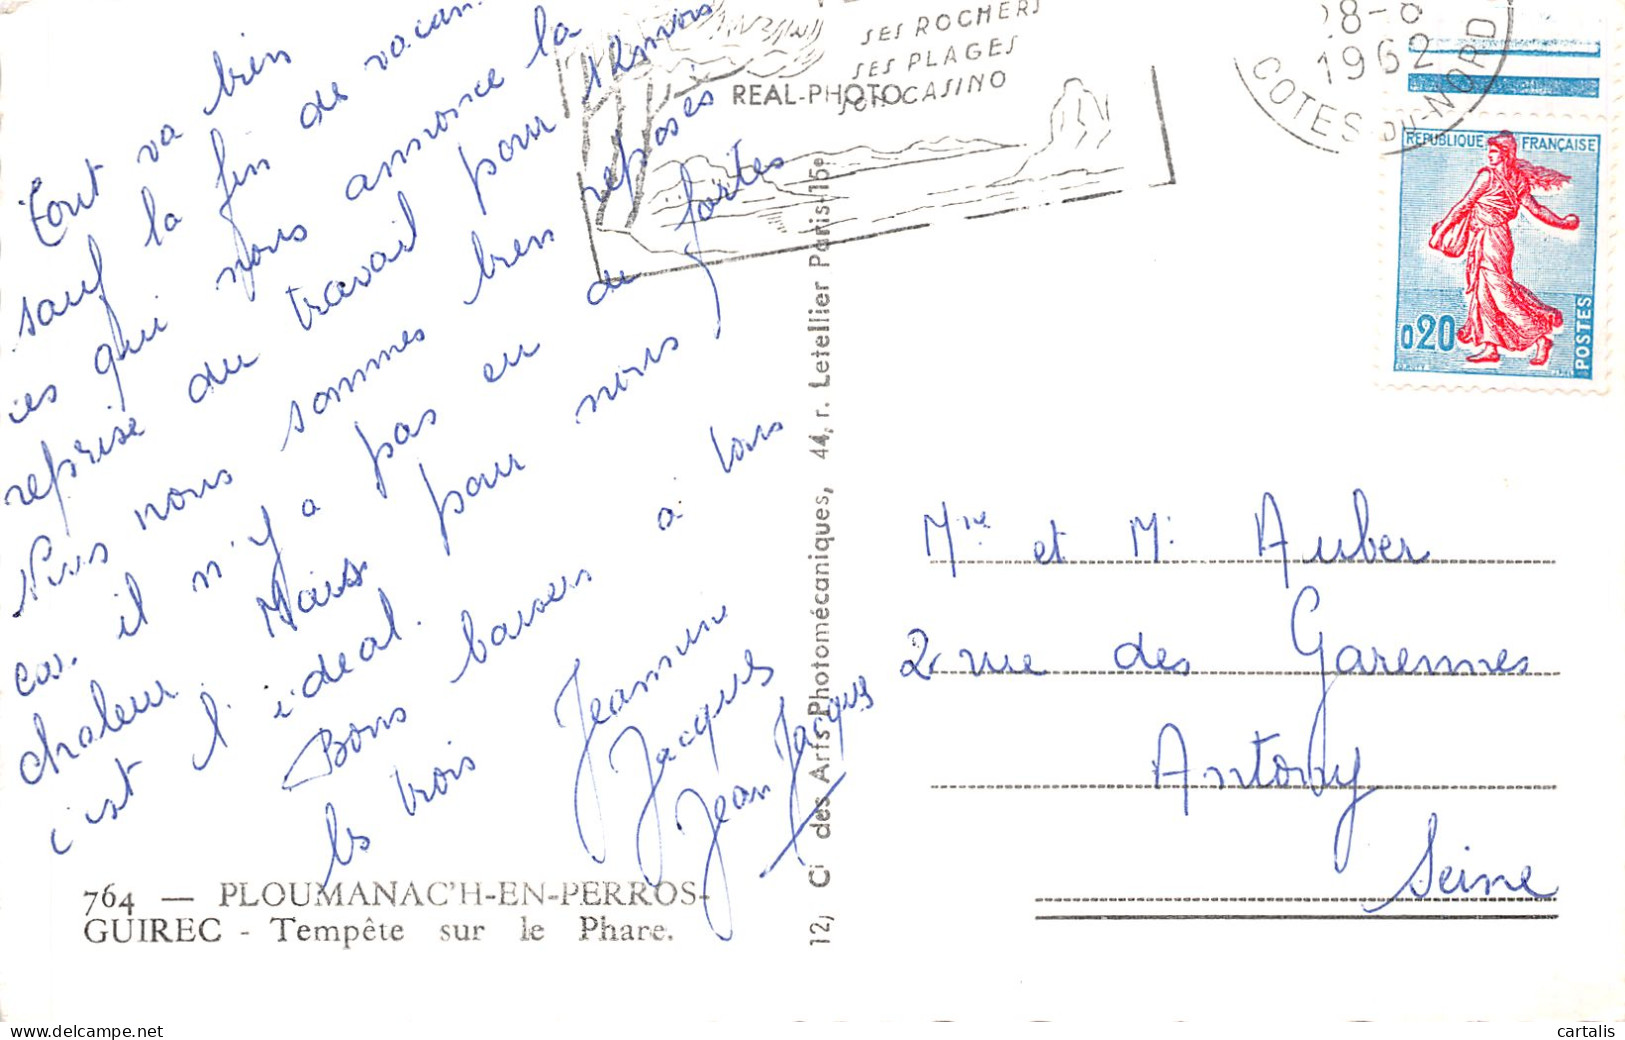 Tout va bien
sauf la fin de vacan
ces qui nous annonce la
reprise du travail pour tous
Nous nous sommes bien reposés
car il n'y a pas eu de fortes
chaleur. Mais pour nous,
c'est l'idéal.
Bons baisers à tous
les trois
Jeannine
Jacques
Jean Jacques
764 — PLOUMANAC'H-EN-PERROS-
GUIREC - Tempête sur le Phare.
SES ROCHERS
SES PLAGES
SON CASINO
REAL-PHOTO
12, Ci des Arts Photomécaniques, 44, r. Letellier Paris-15e
28-8
1962
COTES-DU-NORD
RÉPUBLIQUE FRANÇAISE
0,20
POSTES
Mme et Mr Auber
2 rue des Garennes
Antony
Seine
cartalis